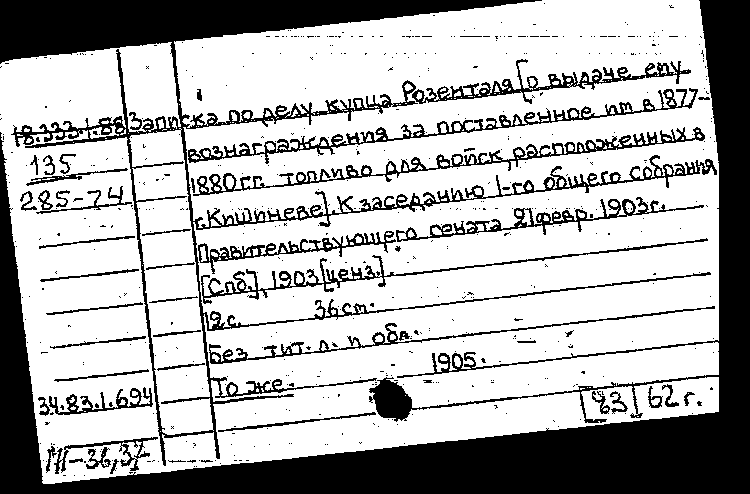 18.333.1.88 Записка по делу купца Розенталя [о выдаче ему
135 вознаграждения за поставленное им в 1877-
285-74 1880 гг. топливо для войск, расположенных в
г. Кишиневе]. К заседанию 1-го общего собрания
Правительствующего сената 21 февр. 1903 г.
[Спб.], 1903 [ценз.].
12 с. 36 cm.
Без тит. л. и обл.
34.83.1.694 То же. 1905.
[83] 62 г.
III-36,37